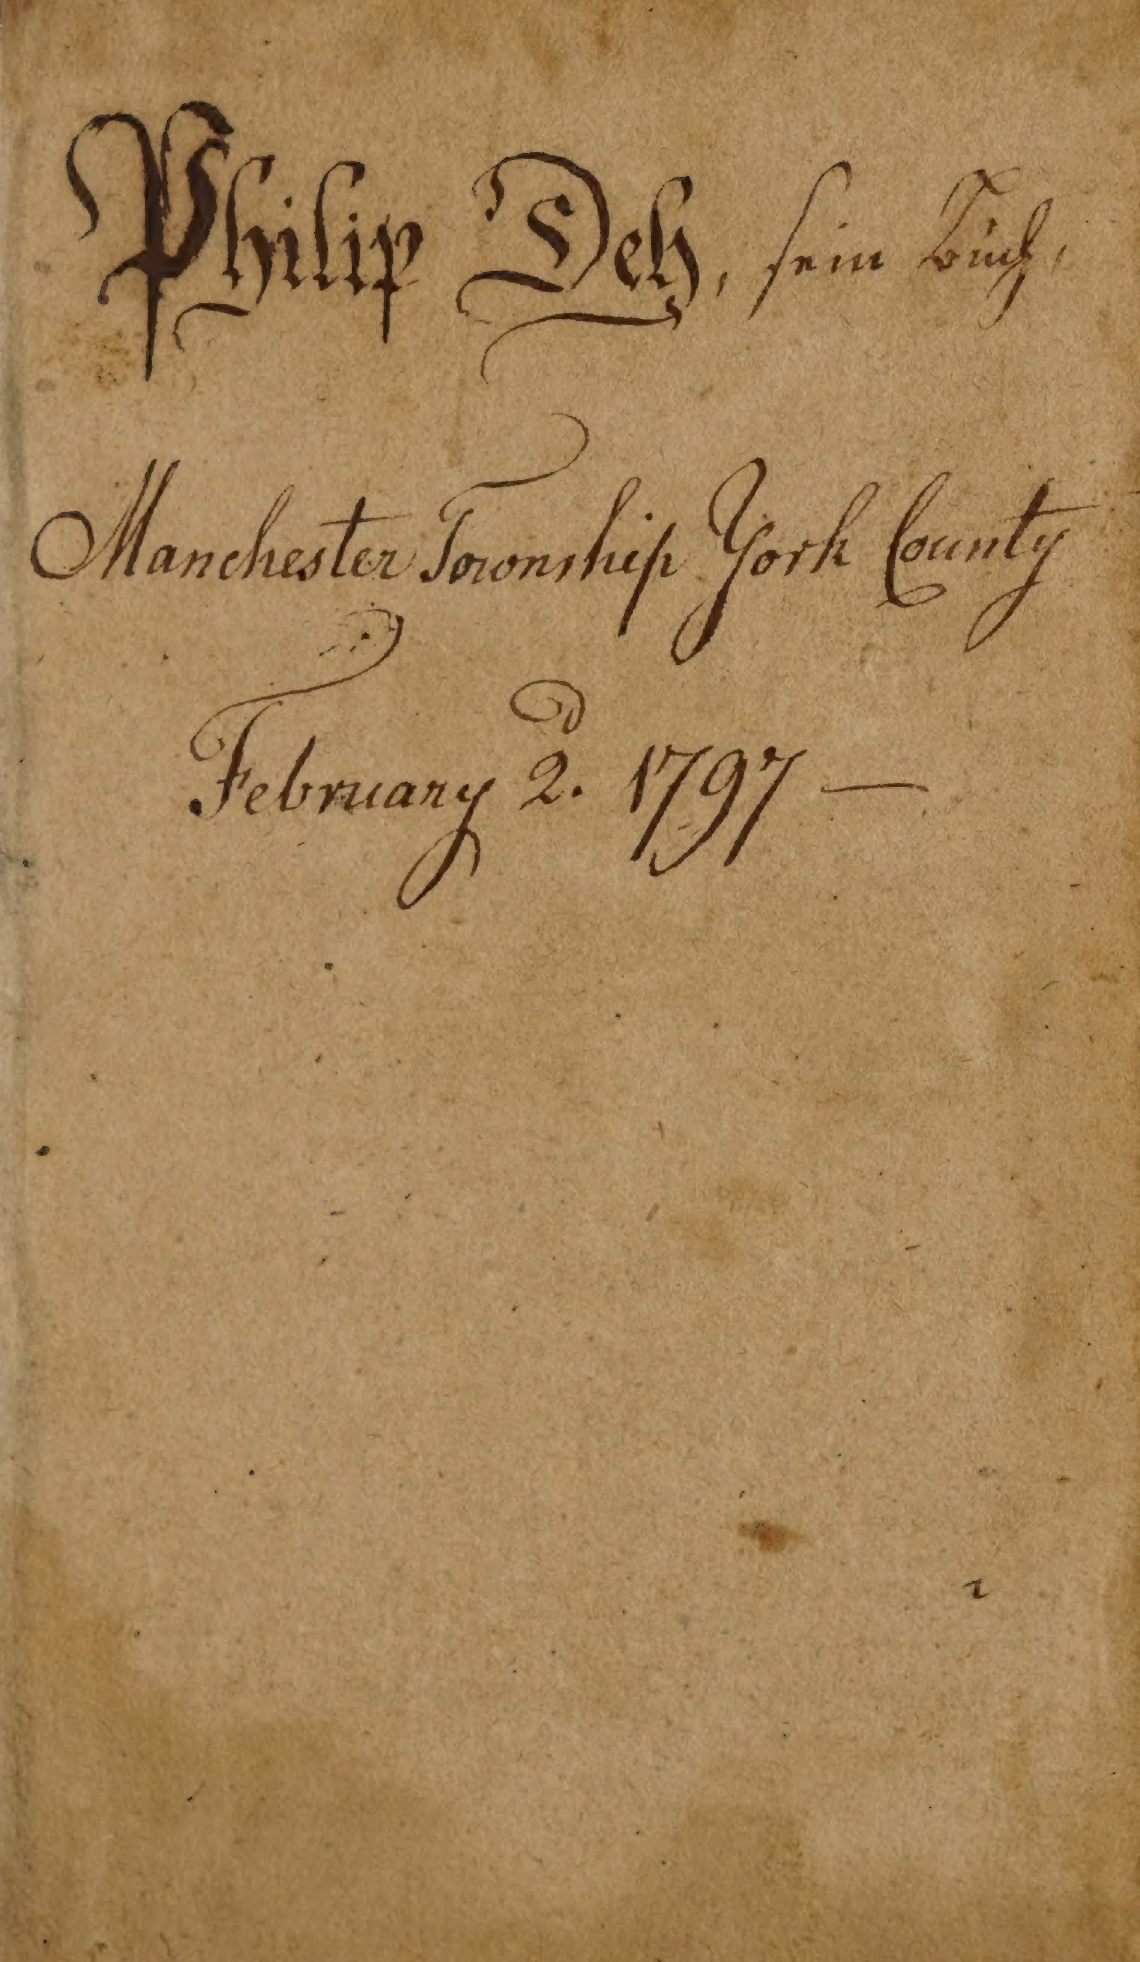 Philip Deh, sein Buch,
Manchester Township York County
February 2.d 1797 —